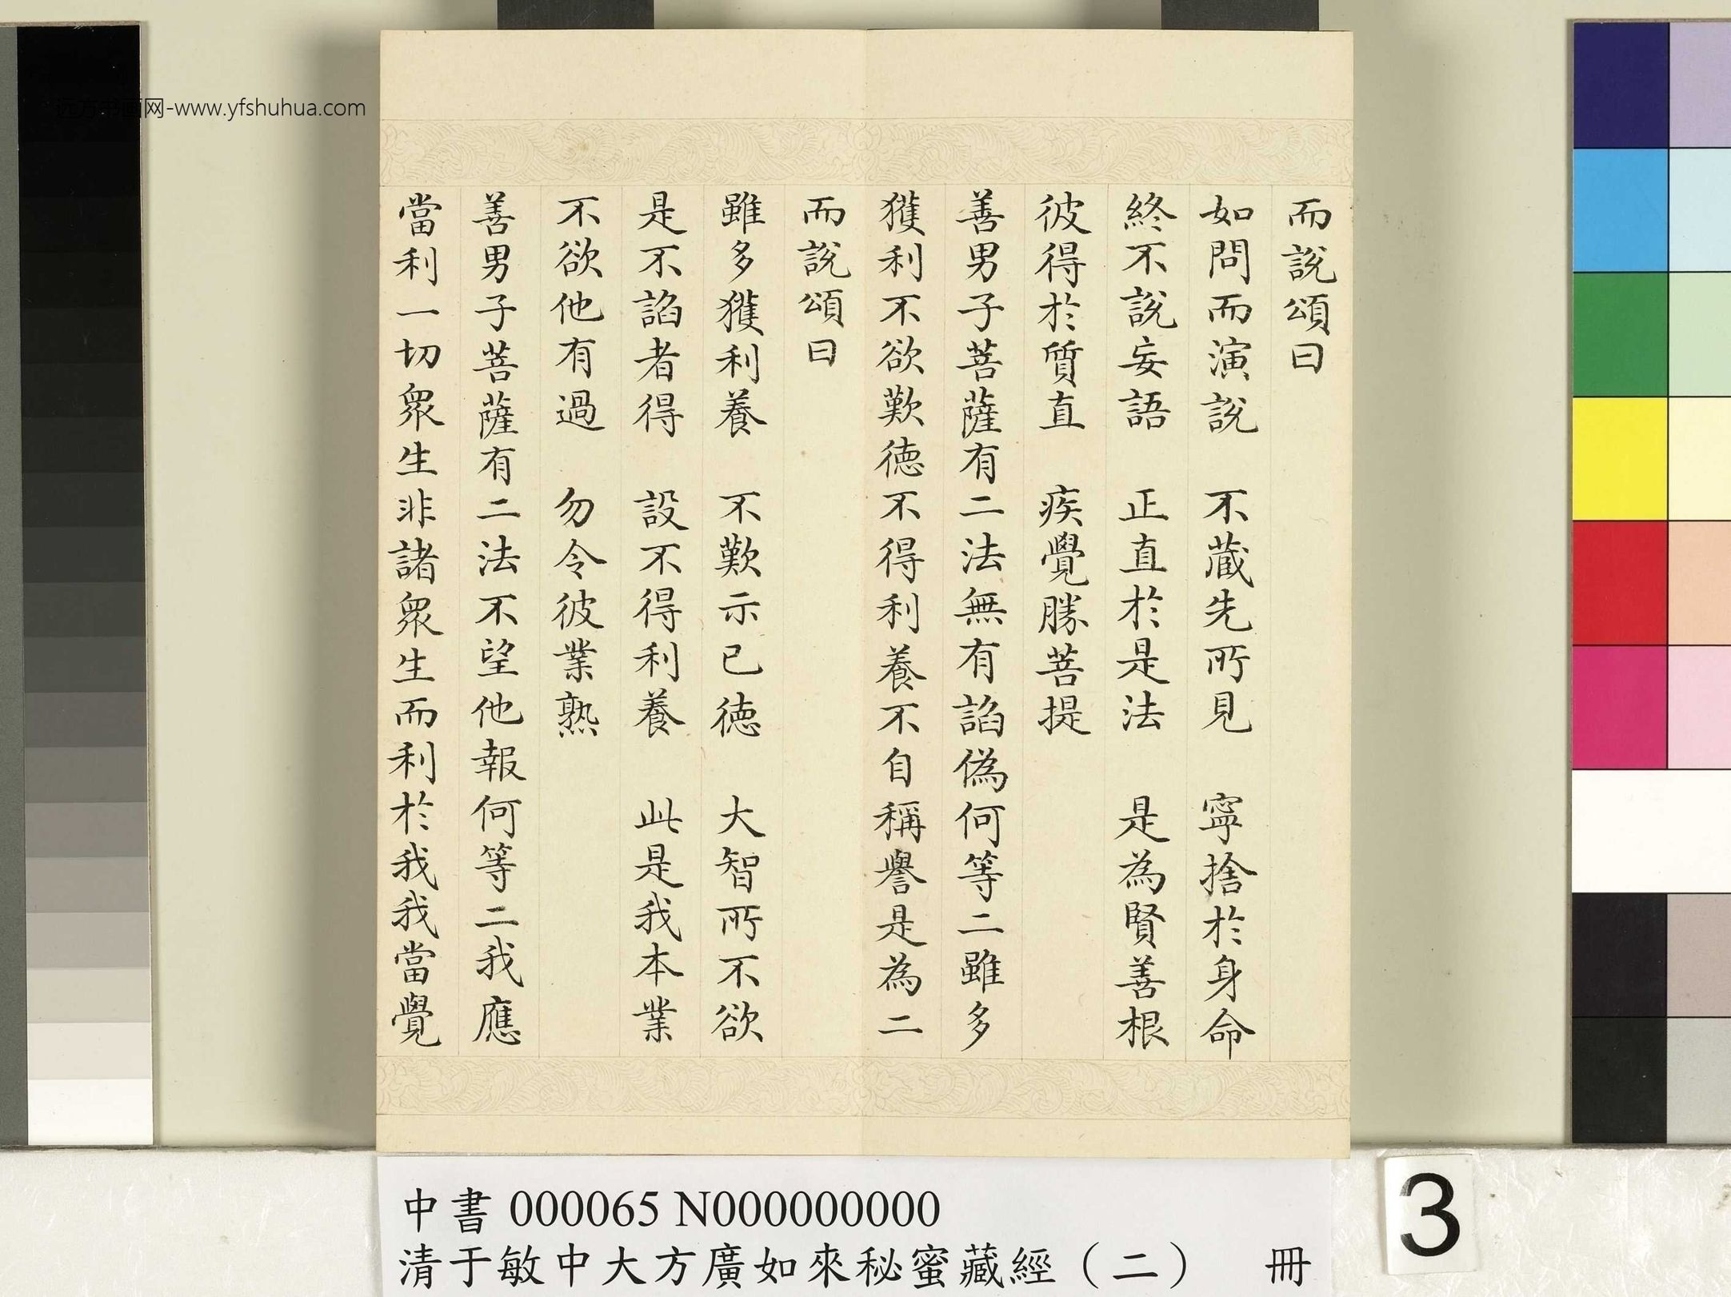 而說頌曰
如問而演說　不藏先所見　寧捨於身命
終不說妄語　正直於是法　是為賢善根
彼得於質直　疾覺勝菩提
善男子菩薩有二法無有諂偽何等二雖多
獲利不欲歎德不得利養不自稱譽是為二
而說頌曰
雖多獲利養　不歎示已德　大智所不欲
是不諂者得　設不得利養　此是我本業
不欲他有過　勿令彼業熟
善男子菩薩有二法不望他報何等二我應
當利一切眾生非諸眾生而利於我我當覺
中書 000065 N000000000
清于敏中大方廣如來秘蜜藏經（二）　冊
3
远方书画网-www.yfshuhua.com